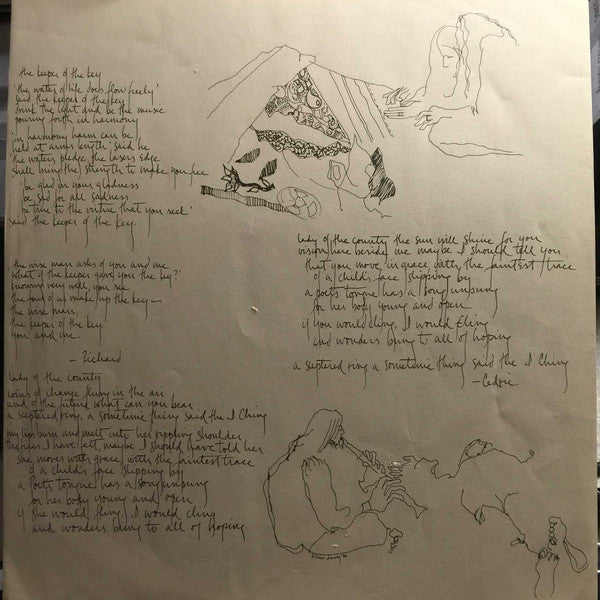 the keeper of the key
'the water of life does flow freely'
said the keeper of the key
drink the light and be the music
pouring forth in harmony
'in harmony harm can be
held at arms length' said he
the waters pledge, the users edge
shall bring the strength to make you free
'be glad in your gladness
be sad for all sadness
be true to the virtue that you seek'
said the keeper of the key.
the wise man asks of you and me
'what if the keeper gave you the key?'
knowing very well, you see
the four of us make up the key —
the wise man,
the keeper of the key
you and me.
— Richard
lady of the county
coins of change hung in the air
and of the future what can you bear
a sceptered ring, a sometime thing said the I Ching
my lips burn and melt into her rippling shoulder
I have felt maybe I should have told her
she moves with grace with the faintest trace
of a child's face slipping by
a poets tongue has a song unsung
for her body young and open
if she would fling, I would cling
and wonders bring to all of hoping
lady of the county the sun will shine for you
vision here beside me maybe I should tell you
that you move in grace with the faintest trace
of a child's face slipping by
a poets tongue has a song unsung
for her body young and open
if you would cling, I would cling
and wonders bring to all of hoping
a sceptered ring a sometime thing said the I Ching
— Cedric